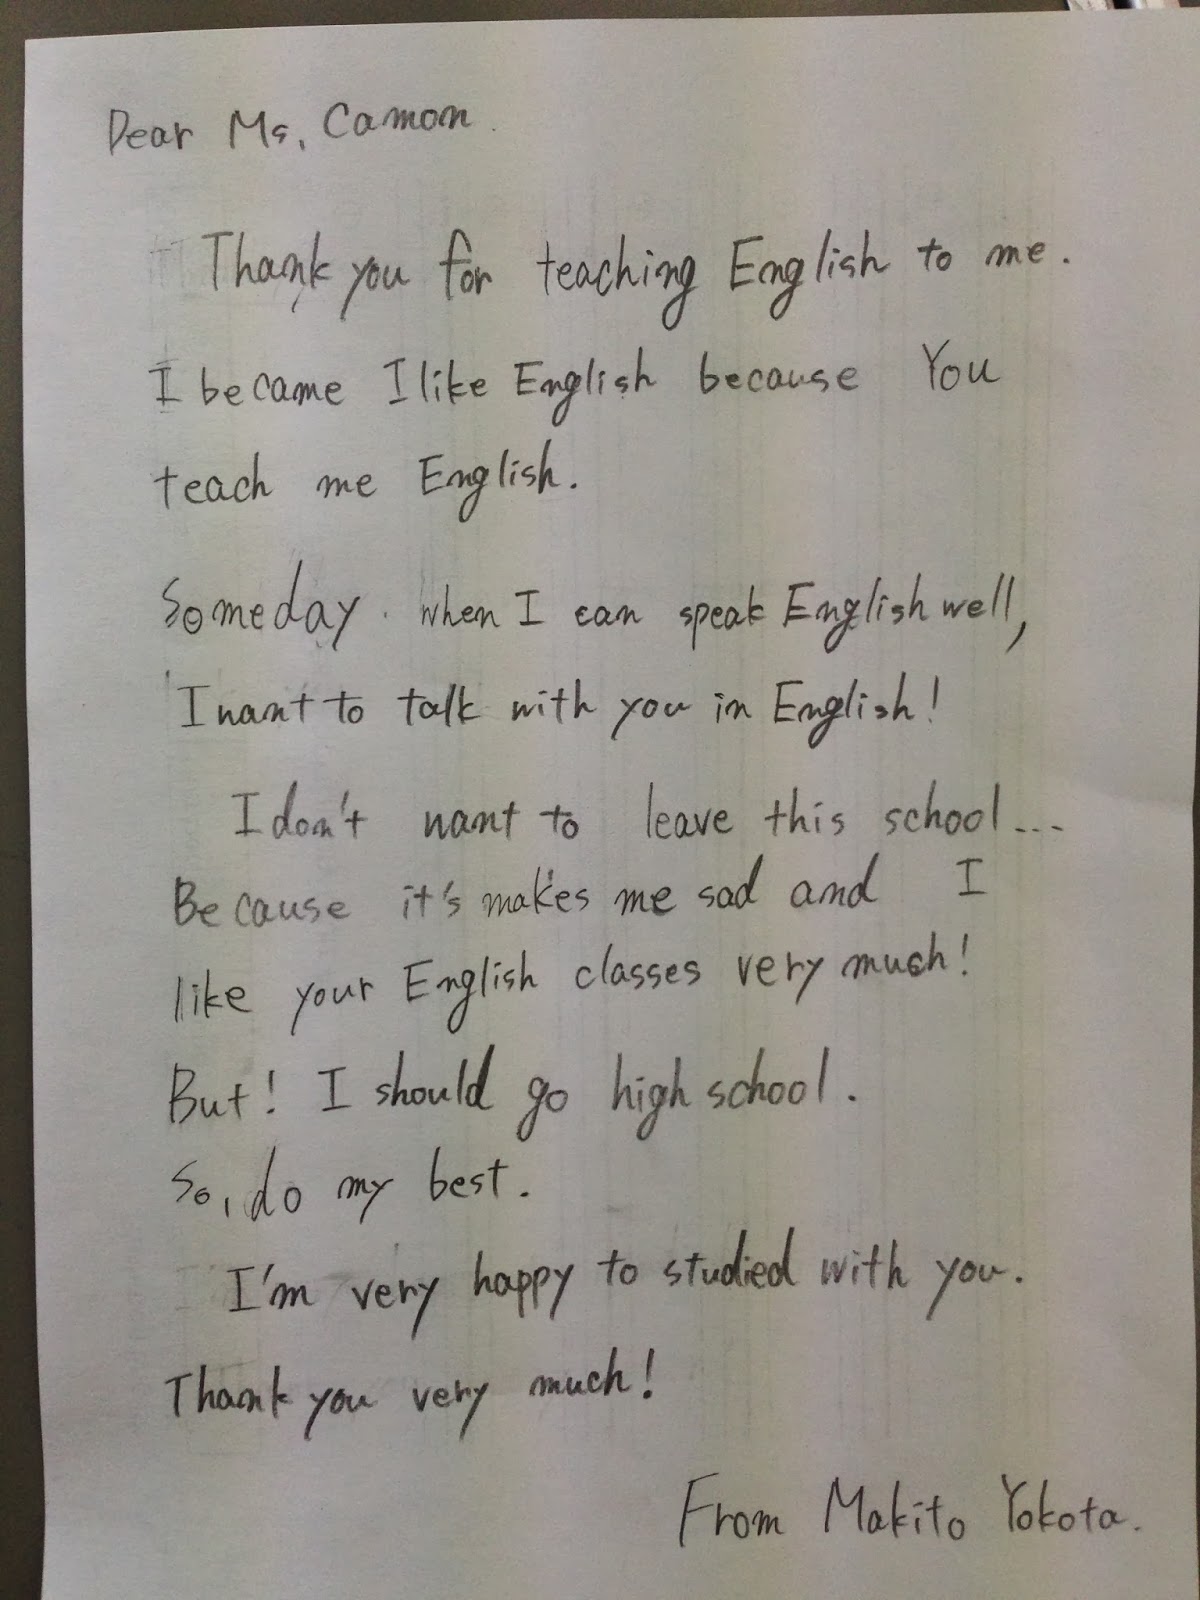 Dear Ms. Camon.
Thank you for teaching English to me.
I became I like English because You
teach me English.
Someday. when I can speak English well,
I want to talk with you in English!
I don't want to leave this school...
Because it's makes me sad and I
like your English classes very much!
But! I should go high school.
So, do my best.
I'm very happy to studied with you.
Thank you very much!
From Makito Yokota.